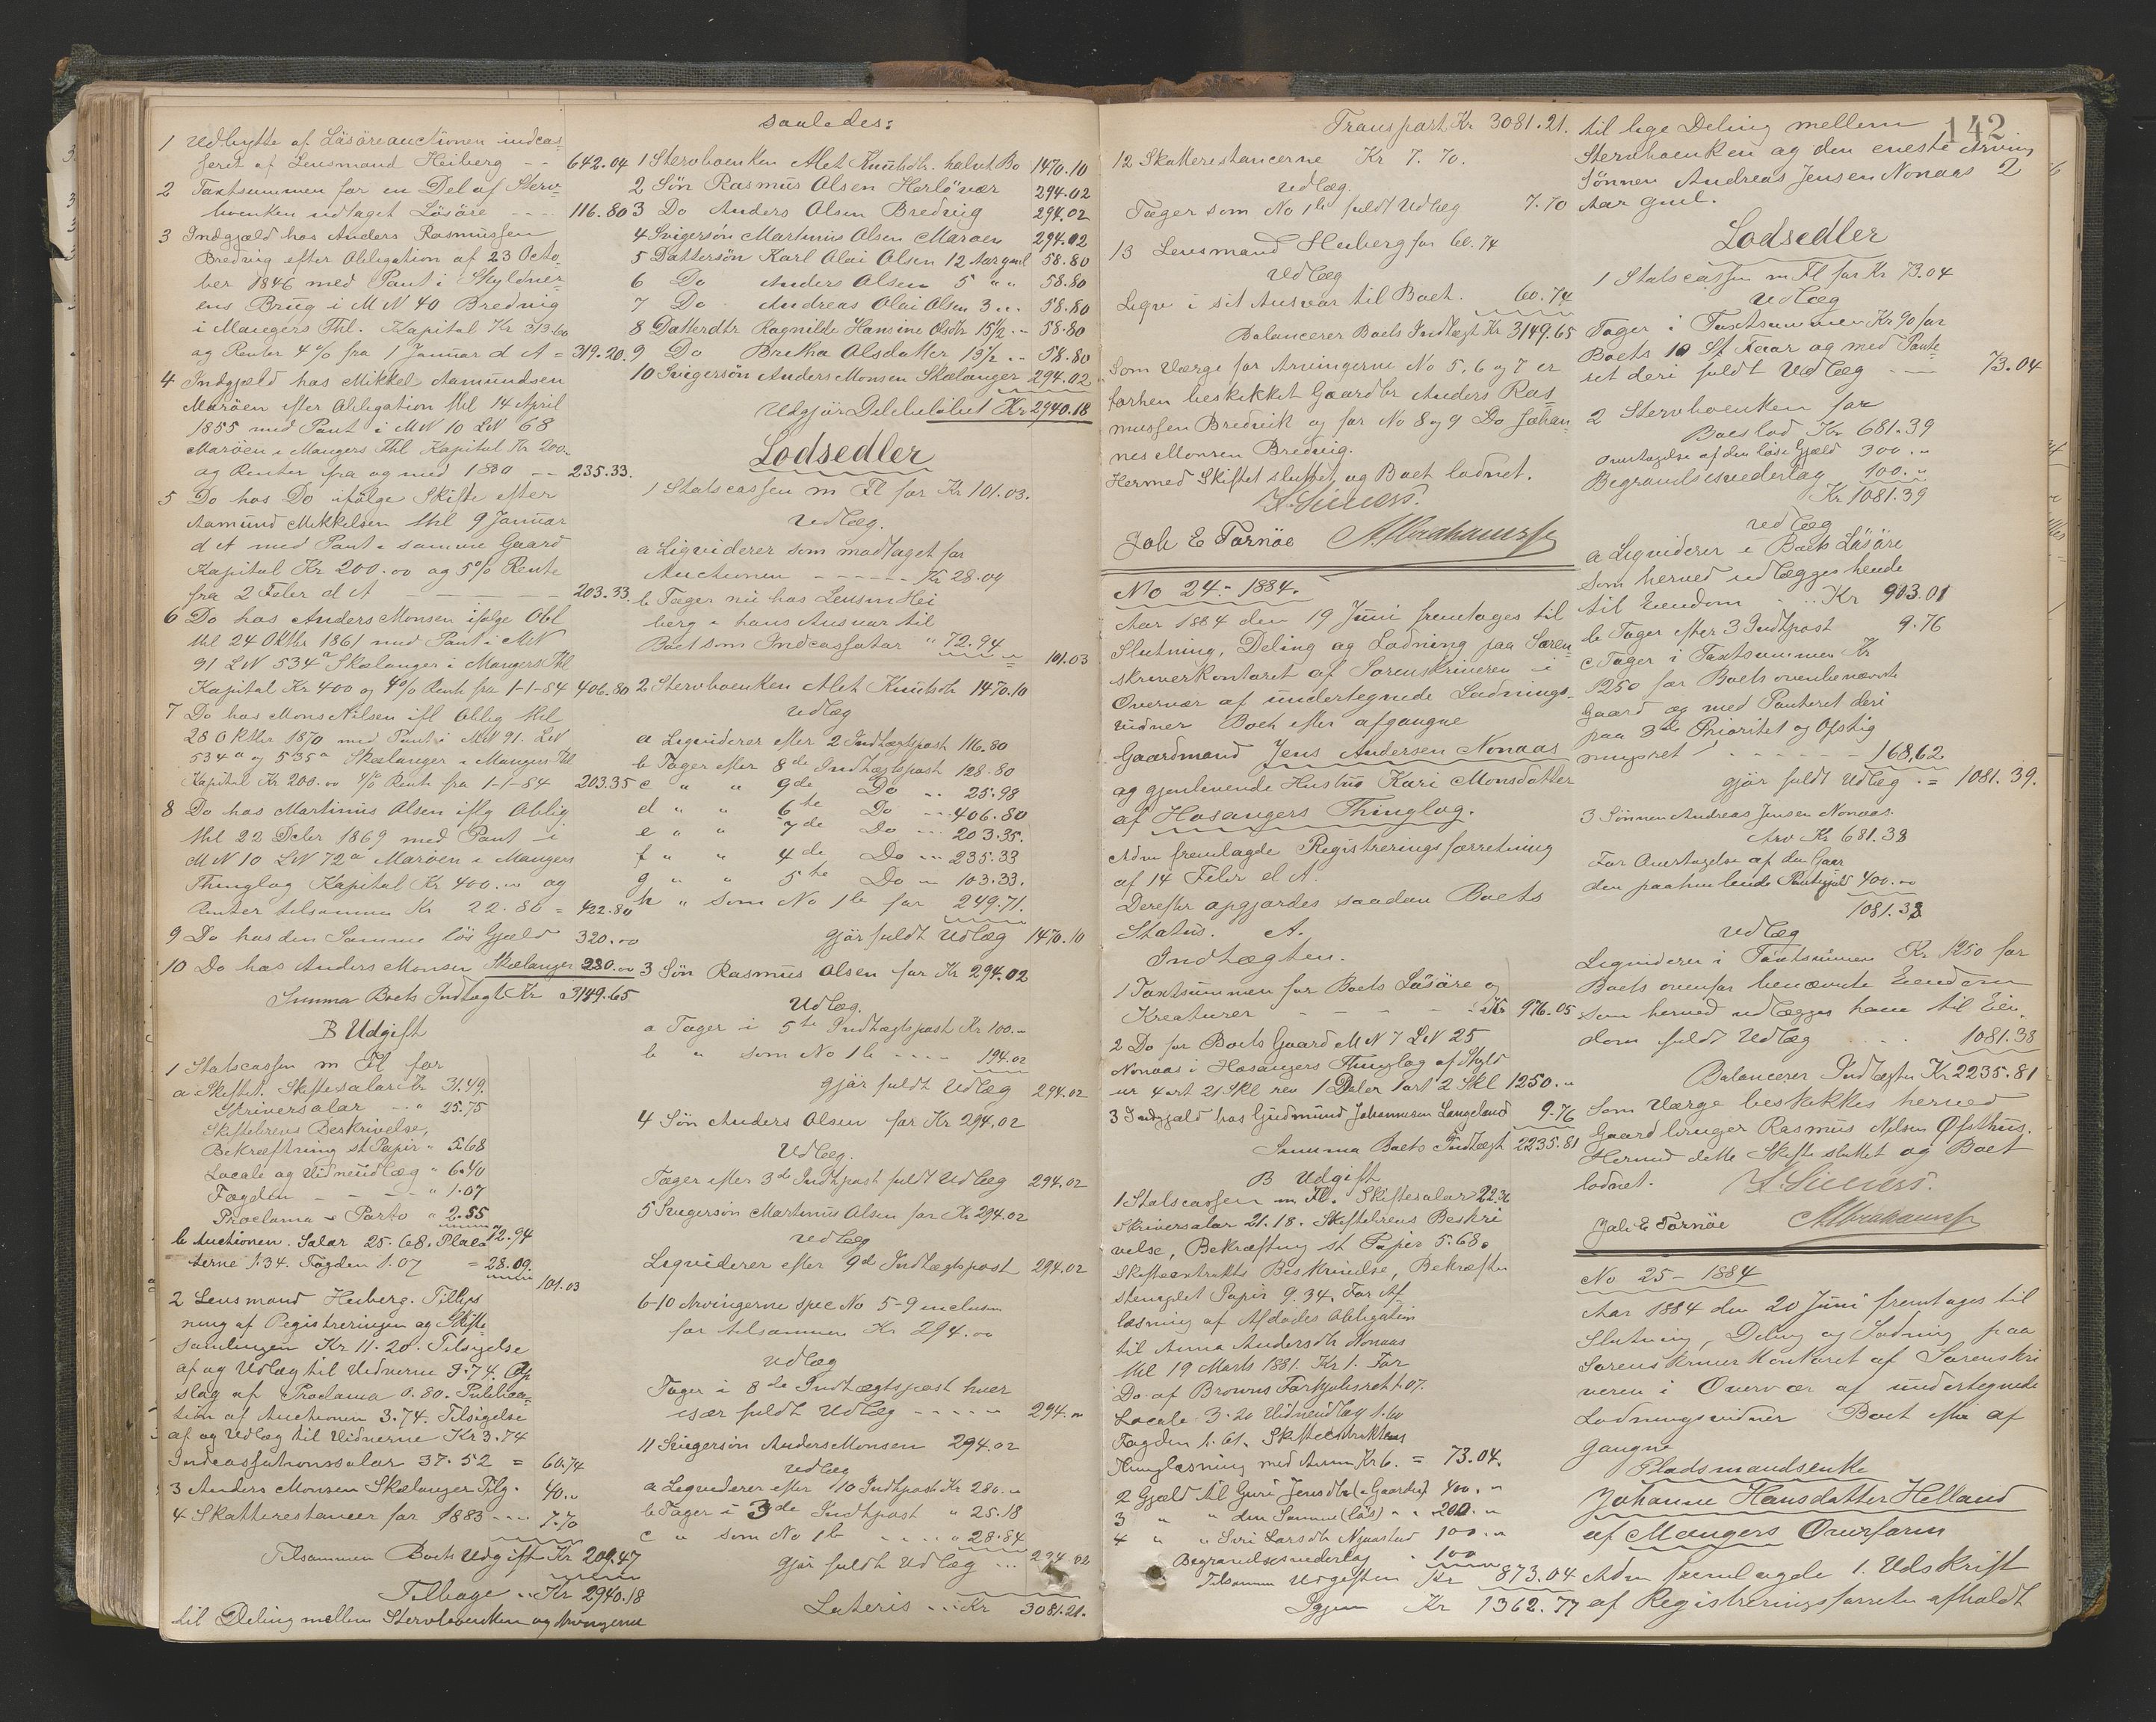 1 Udbytte af Läsöreauctionen indcas
seret af Lensmand Heiberg -- 642.04
2 Taxtsummen for en Del af Sterv-
boenken udtaget Läsöre --- 116.80
3 Indgjæld hos Anders Rasmussen
Bredvig efter Obligation af 23 Octo-
ber 1846 med Pant i Skyldner-
ens Brug i M N 40 Bredvig
i Mangers Thl. Kapital Kr 313.60
og Renter 4% fra 1 Januar d A = 319.20.
4 Indgjæld hos Mikkel Aamundsen
Maröen efter Obligation thl 14 April
1855 med Pant i M N 10 LN 68
Maröen i Mangers Thl Kapital Kr 200.
og Renter fra og med 1880 -- 235.33.
5 Do hos Do ifölge Skifte efter
Aamund Mikkelsen thl 9 Januar
d A med Pant i samme Gaard
Kapital Kr 200.00 og 5% Rente
fra 2 Feler d A ---- 203.33.
6 Do hos Anders Monsen ifölge Obl
thl 24 Oktbr 1861 med Pant i MN
91 LN 534a Skælanger i Mangers Thl
Kapital Kr 400 og 4% Rente fra 1-1-84 406.80
7 Do hos Mons Nilsen ifl Oblig thl
28 Oktbr 1870 med Pant i MN 91. LN
534a og 535a Skælanger i Mangers Thl
Kapital Kr 200.00 4% Rente fra 1-1-84 203.35
8 Do hos Martinus Olsen iflg Oblig
thl 22 Dcbr 1869 med Pant i
M N 10 LN 72a Maröen i Mangers
Thinglag Kapital Kr 400.00 og
Renter tilsammen Kr 22.80 = 422.80
9 Do hos den Samme lös Gjæld 320.00
10 Do hos Anders Monsen Skælanger 280.00
Summa Boets Indtægt Kr 3149.65
B Udgift
1 Statscassen m Fl for
a Skiftet. Skiftesalar Kr 31.49.
Skriversalar -- " 25.75
Skiftebrevs Beskrivelse,
Bekræftning st Papir " 5.68
Locale og Vidneudlæg " 6.40
Fogden ---- " 1.07
Proclama & Porto " 2.55
72.94
b Auctionen. Salar 25.68. Placa
terne 1.34. Fogden 1.07 = 28.09.
101.03
2 Lensmand Heiberg. Tillys
ning af Registreringen og Skifte
samlingen Kr 11.20. Tilsigelse
af og Udlæg til Vidnerne 3.74. Op
slag af Proclama 0.80. Publica-
tion af Auctionen 3.74. Tilsigelse
af og Udlæg til Vidnerne Kr 3.74
Indcassationssalar 37.52 = 60.74
3 Anders Monsen Skælanger Tilg. 40.00
4 Skatterestancer for 1883 --- 7.70
Tilsammen Boets Udgift Kr 209.47
Tilbage .. Kr 2940.18
til Deling mellem Stervboenken og Arvingerne
saaledes:
1 Stervboenken Alet Knutsdtr. halvt Bo 1470.10
2 Sön Rasmus Olsen Herlövær 294.02
3 Do Anders Olsen Bredvig 294.02
4 Svigersön Martinus Olsen Maröen 294.02
5 Dattersön Karl Olai Olsen 12 Aar gml 58.80
6 Do Anders Olsen 5 " " 58.80
7 Do Andreas Olai Olsen 3 .. . 58.80
8 Datterdtr Ragnilde Hansine Olsdtr 15 1/2 .. 58.80
9 Do Bretha Olsdatter 13 1/2 .. 58.80
10 Svigersön Anders Monsen Skælanger 294.02
Udgjör Delebelöbet Kr 2940.18
Lodsedler
1 Statscassen m Fl for Kr 101.03.
Udlæg.
a Liqviderer som modtaget for
Auctionen ----- Kr 28.09
b Tager nu hos Lensm Hei
berg i hans Ansvar til
Boet som Indcassator " 72.94
= 101.03
2 Stervboenken Alet Knutsdtr 1470.10
Udlæg
a Liqviderer efter 2 Indtægtspost 116.80
b Tager efter 8de Indtægtspost 128.80
c " " 9de Do .. 25.98
d " " 6te Do ... 406.80
e " " 7de Do ... 203.35.
f " " 4de Do ... 235.33
g " " 5te Do .. 103.33.
h " som No 1b for 249.71.
gjör fuldt Udlæg 1470.10
3 Sön Rasmus Olsen for Kr 294.02
Udlæg.
a Tager i 5te Indtægtspost Kr 100.00
b " som No 1b ---- 194.02
gjör fuldt Udlæg 294.02
4 Sön Anders Olsen for Kr 294.02
Udlæg.
Tager efter 3de Indtpost fuldt Udlæg 294.02
5 Svigersön Martinus Olsen for Kr 294.02
Udlæg
Liqviderer efter 9de Indtægtspost 294.02
6-10 Arvingerne spec No 5-9 inclusive
for tilsammen Kr 294.00
Udlæg
Tager i 8de Indtægtspost hver
især fuldt Udlæg ----- 294.00
11 Svigersön Anders Monsen 294.02
Udlæg
a Liqviderer efter 10 Indtpost Kr 280.00
b Tager i 3de Indtpost " 25.18
c " som No 1b .... " 28.84
gjör fuldt Udlæg ... 294.02
Lateris ... Kr 3081.21.
Transport Kr 3081.21.
12 Skatterestancerne Kr 7.70.
Udlæg.
Tager som No 1b fuldt Udlæg 7.70
13 Lensmand Heiberg for 60.74
Udlæg
Liqv i sit Ansvar til Boet. 60.74
Balancerer Boets Indtægt Kr 3149.65
Som Værge for Arvingerne No 5, 6 og 7 er
forhen beskikket Gaardbr Anders Ras-
mussen Bredvik og for No 8 og 9 Do Johan-
nes Monsen Bredvig.
Hermed Skiftet sluttet og Boet lodnet.
Joh E Tornöe
No 24 - 1884.
Aar 1884 den 19 Juni fremtages til
Slutning, Deling og Lodning paa Soren-
skriverkontoret af Sorenskriveren i
Overvær af undertegnede Lodnings-
vidner Boet efter afgangne
Gaardmand Jens Andersen Nonaas
og gjenlevende Hustru Kari Monsdatter
af Hosangers Thinglag.
Adm fremlagde Registreringsforretning
af 14 Febr d A.
Derefter opgjordes saadan Boets
Status. A.
Indtægten.
1 Taxtsummen for Boets Läsöre og
Kreaturer ---- Kr 976.05
2 Do for Boets Gaard M N 7 LN 25
Nonaas i Hosangers Thinglag af Skyld
ur 4 ort 21 Skl rev 1 Daler 1 ort 2 Skl 1250.00
3 Indgjæld hos Gudmund Johannesen Langeland 9.76
Summa Boets Indtægt 2235.81
B Udgift
1 Statscassen m Fl. Skiftesalar 22.36
Skriversalar 21.18. Skiftebrevs Beskri
velse, Bekræftning st Papir 5.68.
Skifteextrakts Beskrivelse, Bekræftn
stemplet Papir 9.34. For Af-
læsning af Afdödes Obligation
til Anna Andersdtr Nonaas
thl 19 Marts 1881. Kr 1. For
Do af Browns Forkjöbsret 1.07.
Locale 3.20 Vidneudlæg 1.60
Fogden 1.61. Skifteextraktens
Thinglæsning med Anm Kr 6. = 73.04.
2 Gjæld til Guri Jensdtr (i Gaarden) 400.00
3 " " den Samme (lös) " " 200.00
4 " " Siri Larsdtr 100.00
Begravelsesvederlag . 100
Tilsammen Udgiften Kr 873.04
Igjen Kr 1362.77
142.
til lige Deling mellem
Stervboenken og den eneste Arving
Sönnen Andreas Jensen Nonaas 2
Aar gml.
Lodsedler
1 Statscassen m Fl for Kr 73.04
Udlæg
Tager i Taxtsummen Kr 90 for
Boets 10 St Faar og med Pante-
ret deri fuldt Udlæg --- 73.04
2 Stervboenken for
Boeslod Kr 681.39
Overtagelse af den löse Gjæld 300.00
Begravelsesvederlag 100.00
Kr 1081.39
Udlæg
a Liqviderer i Boets Läsöre
som herved udlægges hende
til Eiendom ... Kr 903.01
b Tager efter 3 Indtpost 9.76
c Tager i Taxtsummen Kr
1250 for Boets ovenbenævnte
Gaard og med Panteret deri
paa 3de Prioritet og Opstig
ningsret ----- 168,62
gjör fuldt Udlæg . = 1081.39.
3 Sönnen Andreas Jensen Nonaas.
Arv Kr 681.38
For Overtagelse af den Gaar
den paahvilende Pantegjæld 400.00
1081.38
Udlæg
Liqviderer i Taxtsummen Kr 1250 for
Boets ovenfor benævnte Eiendom
som herved udlægges ham til Eien-
dom fuldt Udlæg ... 1081.38
Balancerer Indtægten Kr 2235.81
Som Værge beskikkes herved
Gaardbruger Rasmus Nilsen Øpsthus.
Hermed dette Skifte sluttet og Boet
lodnet.
Joh E Tornöe
No 25 - 1884
Aar 1884 den 20 Juni fremtages til
Slutning, Deling og Lodning paa
Sorenskriverkontoret af Sorenskri
veren i Overvær af undertegnede
Lodningsvidner Boet efter af
gangne
Pladsmandsenke
Johanne Hansdatter Helland
af Mangers Overform
Adm fremlagde 1. Udskrift
af Registreringsforretn afholdt